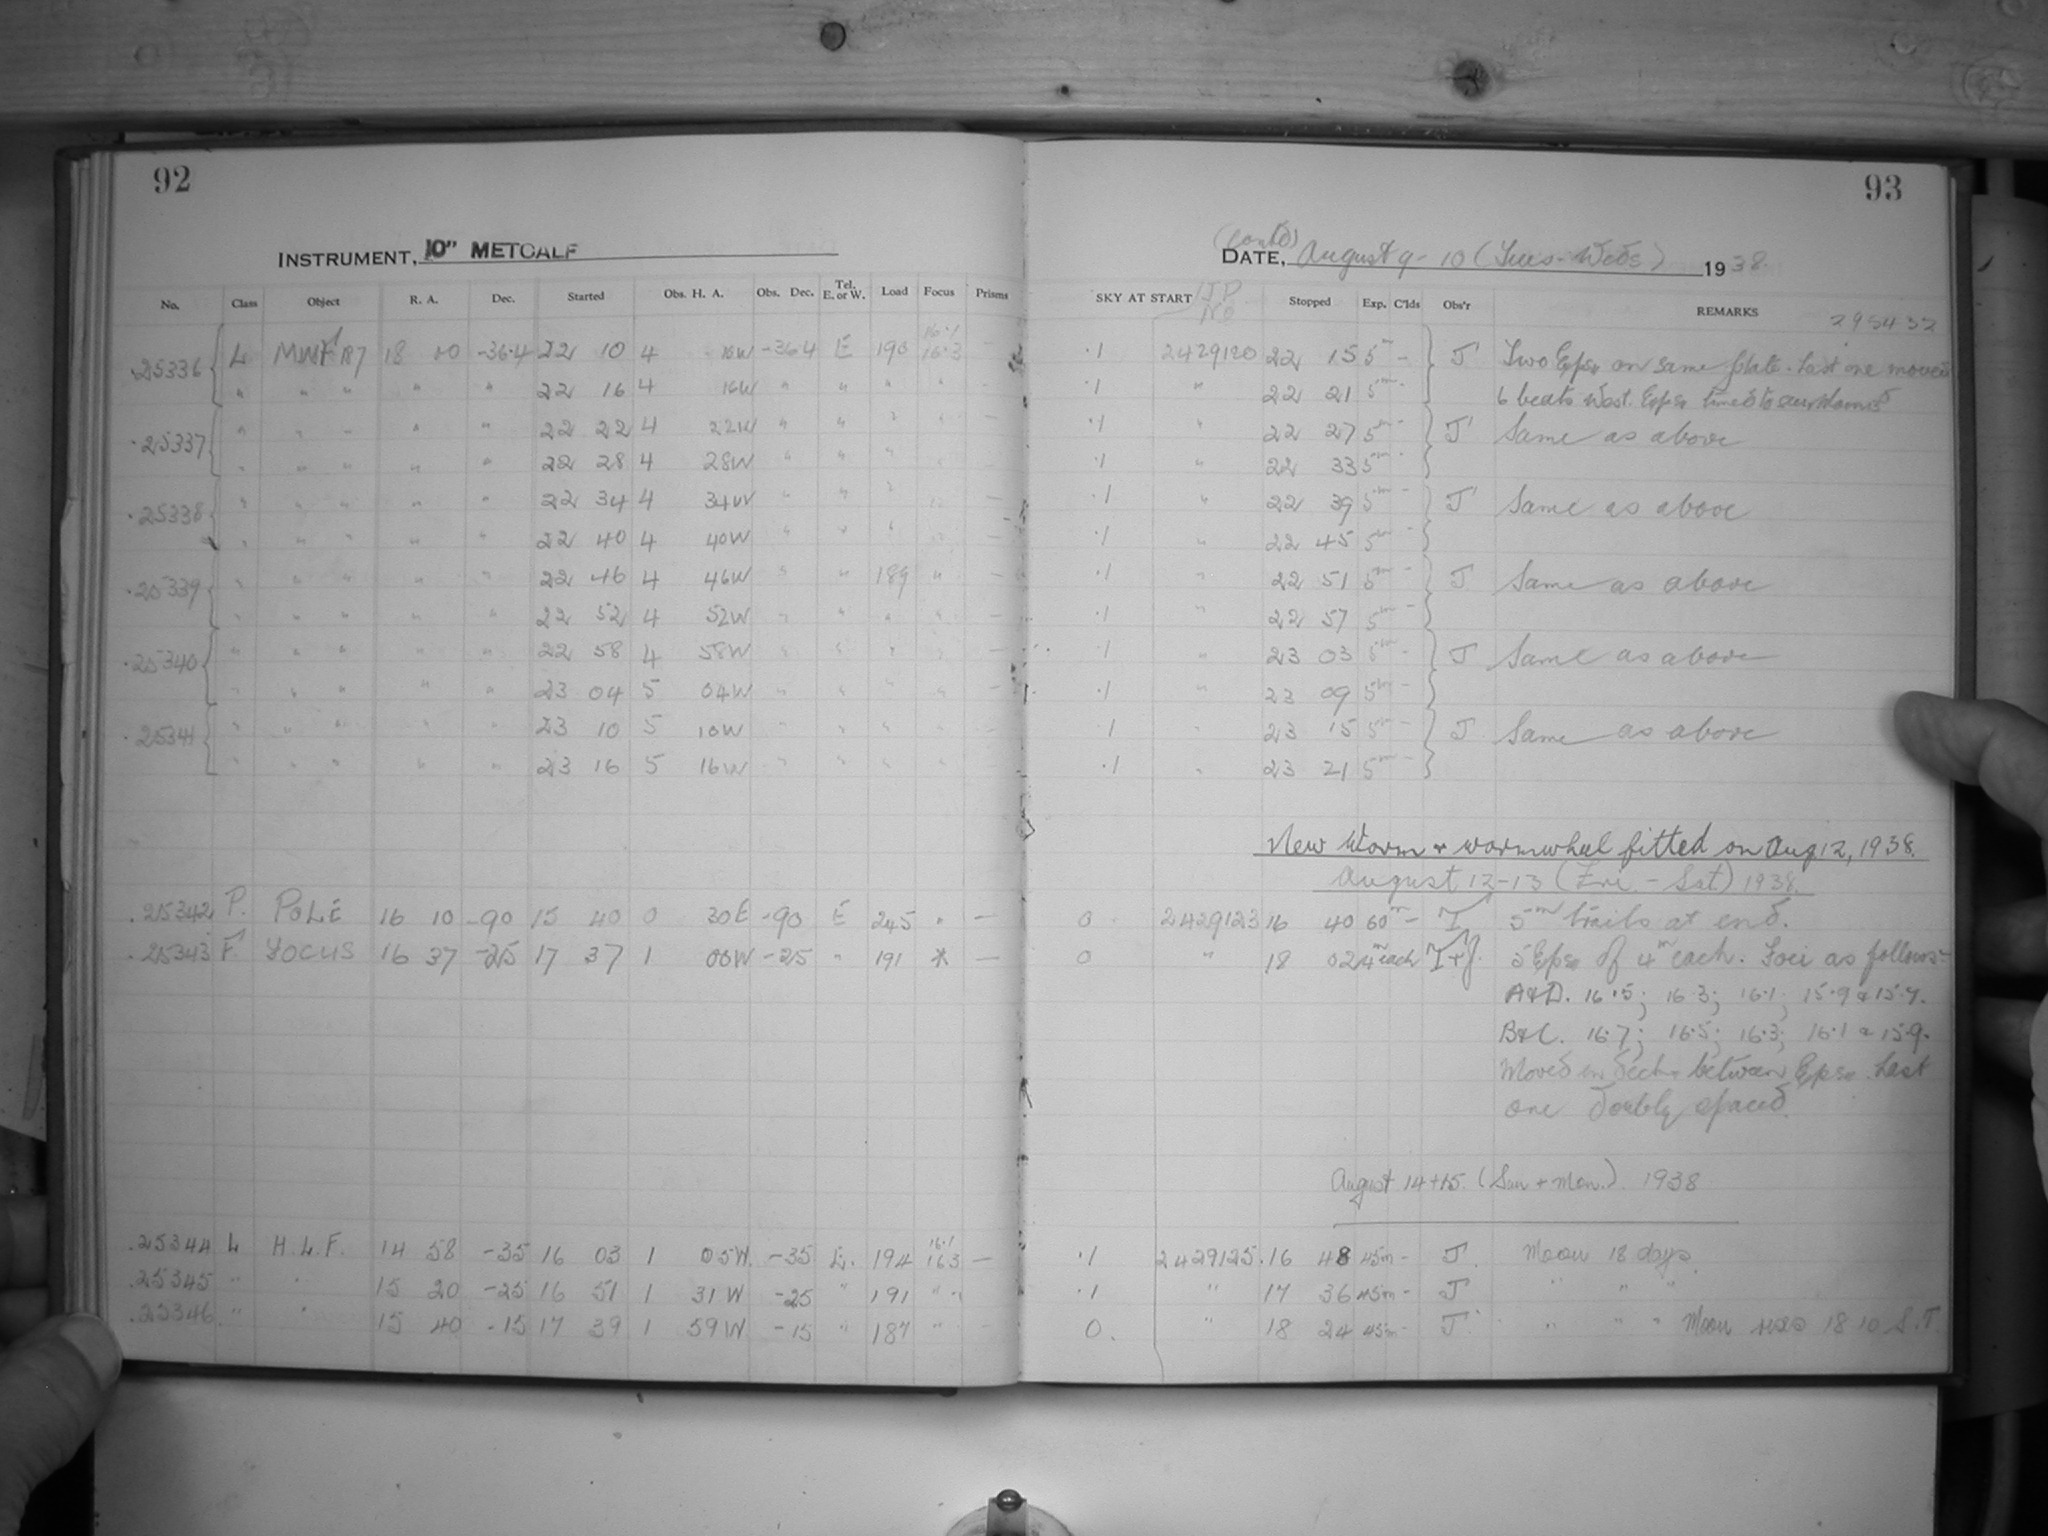 92
INSTRUMENT, 10" METCALF
No. Class Object R. A. Dec. Started Obs. H. A. Obs. Dec. Tel. E. or W. Load Focus Prisms
25336 L MWF 187 18 00 -36.4 22 10 4 10W -36.4 E 190 16.1 16.3 -
" " " " " 22 16 4 16W " " " " -
25337 " " " " " 22 22 4 22W " " " " -
" " " " " 22 28 4 28W " " " " -
25338 " " " " " 22 34 4 34W " " " " -
" " " " " 22 40 4 40W " " " " -
25339 " " " " " 22 46 4 46W " " 189 " -
" " " " " 22 52 4 52W " " " " -
25340 " " " " " 22 58 4 58W " " " " -
" " " " " 23 04 5 04W " " " " -
25341 " " " " " 23 10 5 10W " " " " -
" " " " " 23 16 5 16W " " " " -
25342 P. POLE 16 10 -90 15 40 0 30E -90 E 245 " -
25343 F FOCUS 16 37 -25 17 37 1 00W -25 " 191 * -
25344 L H.L.F. 14 58 -35 16 03 1 05W -35 E. 194 16.1 16.3 -
25345 " " 15 20 -25 16 51 1 31W -25 " 191 " "
25346 " " 15 40 -15 17 39 1 59W -15 " 187 " -
93
(contd)
DATE, August 9-10 (Tues-Weds) 1938.
SKY AT START J.D. No Stopped Exp. C'lds Obs'r REMARKS
295432
.1 2429120 22 15 5m - J Two Exps. on same plate. Last one moved
.1 " 22 21 5m - 6 beats West. Exps. timed to
.1 " 22 27 5m - J Same as above
.1 " 22 33 5m -
.1 " 22 39 5m - J Same as above
.1 " 22 45 5m -
.1 " 22 51 5m - J Same as above
.1 " 22 57 5m -
.1 " 23 03 5m - J Same as above
.1 " 23 09 5m -
.1 " 23 15 5m - J Same as above
.1 " 23 21 5m -
New Worm & wormwheel fitted on Aug 12, 1938.
August 12-13 (Fri.-Sat) 1938.
0 2429123 16 40 60m - 5m trails at end.
0 " 18 02 4m each 5 Exps. of 4m each. Foci as follows:-
A&D. 16.5; 16.3; 16.1; 15.9 & 15.7.
B&C. 16.7; 16.5; 16.3; 16.1 & 15.9.
Moved in decl. between Exps. Last
one doubly spaced.
August 14+15. (Sun + Mon.). 1938
.1 2429125. 16 48 45m - J. Moon 18 days.
.1 " 17 36 45m - J " " "
0. " 18 24 45m - J " " " Moon rises 18 10 S.T.